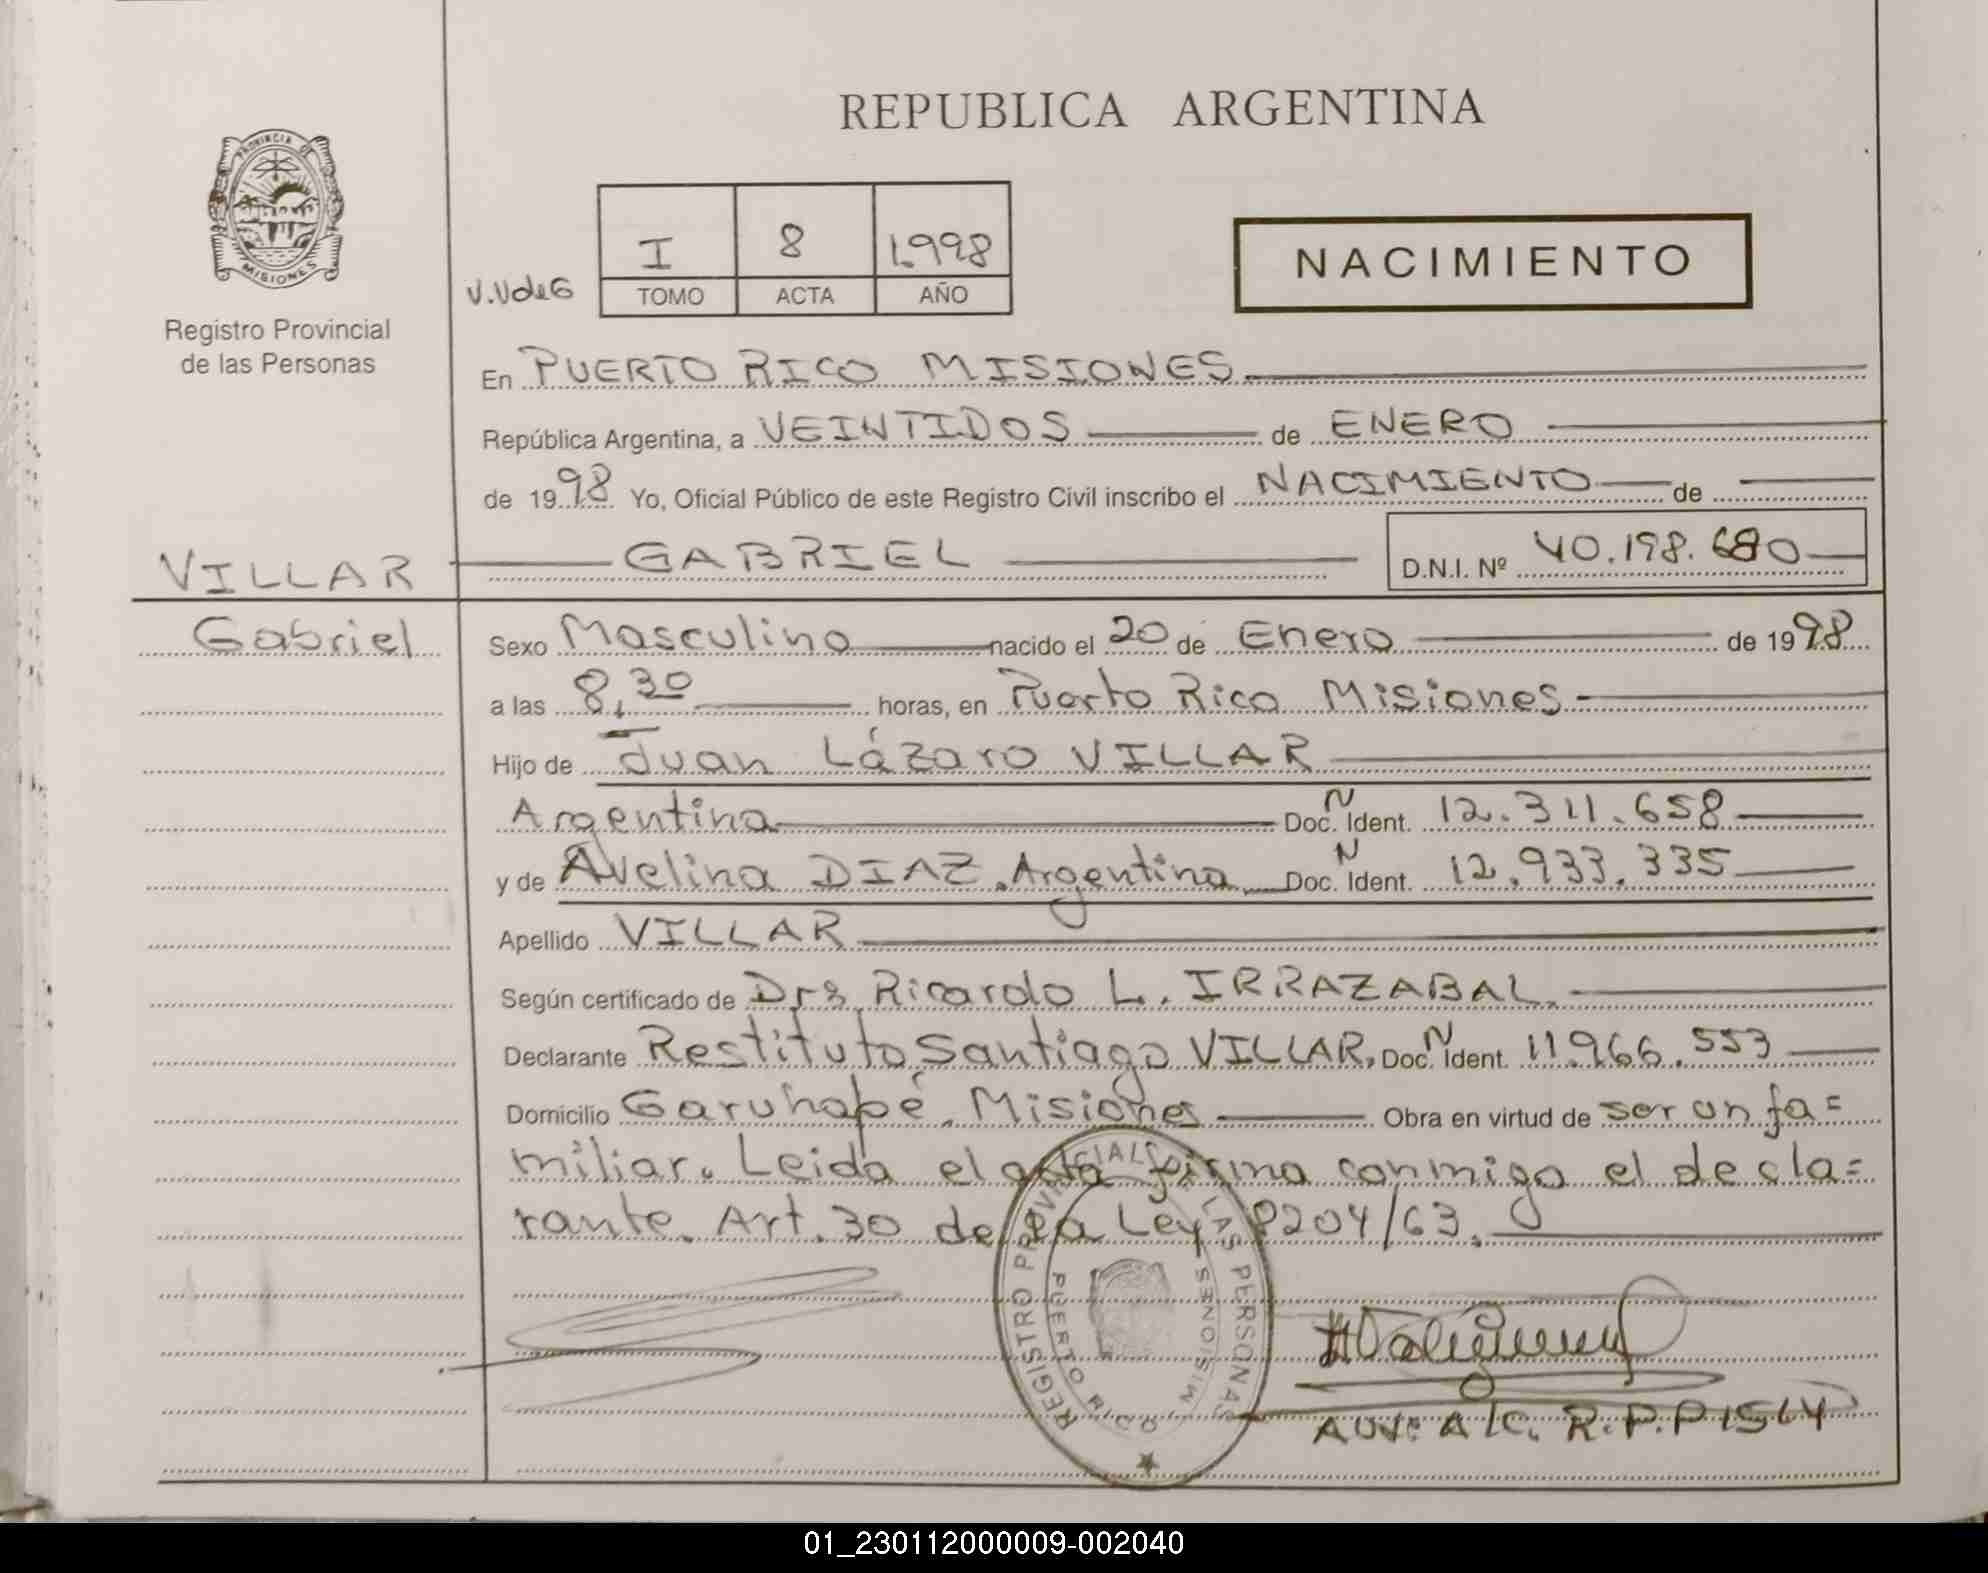 REPUBLICA ARGENTINA
PROVINCIA DE
MISIONES
Registro Provincial
de las Personas
I 8 1.998
V.VdeG TOMO ACTA AÑO
NACIMIENTO
En PUERTO RICO MISIONES
República Argentina, a VEINTIDOS de ENERO
de 19 98 Yo, Oficial Público de este Registro Civil inscribo el NACIMIENTO de
VILLAR GABRIEL D.N.I. Nº 40.198.680
Gabriel Sexo Masculino nacido el 20 de Enero de 19 98
a las 8,30 horas, en Puerto Rico Misiones
Hijo de Juan Lázaro VILLAR
Argentina Doc. N Ident. 12.311.658
y de Avelina DIAZ. Argentina Doc. N Ident. 12.933.335
Apellido VILLAR
Según certificado de Dr. Ricardo L. IRRAZABAL.
Declarante Restituto Santiago VILLAR, Doc. N Ident. 11.966.553
Domicilio Garuhapé. Misiones Obra en virtud de ser un fa=
miliar. Leida el acta firma conmigo el decla=
rante. Art. 30 de la Ley 8204/63.
REGISTRO PROVINCIAL DE LAS PERSONAS
PUERTO RICO MISIONES
AUX: A/C. R.P.P 1564
01_230112000009-002040